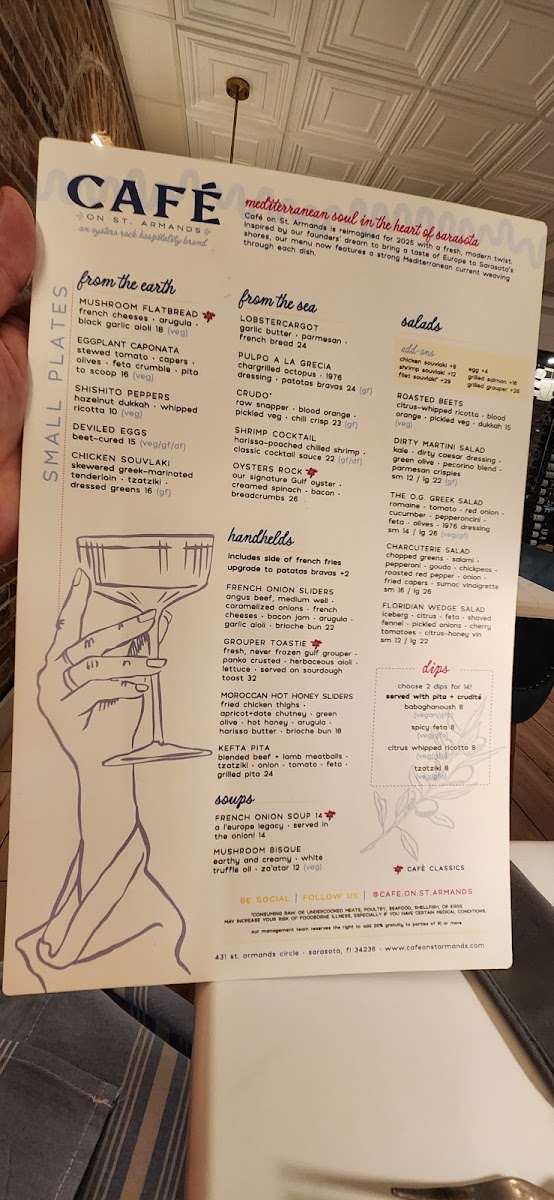 CAFÉ
ON ST. ARMANDS
an oysters rock hospitality brand
mediterranean soul in the heart of sarasota
Café on St. Armands is reimagined for 2025 with a fresh, modern twist.
Inspired by our founders' dream to bring a taste of Europe to Sarasota's
shores, our menu now features a strong Mediterranean current weaving
through each dish.
SMALL PLATES
from the earth
MUSHROOM FLATBREAD
french cheeses · arugula ·
black garlic aioli 18 (veg)
EGGPLANT CAPONATA
stewed tomato · capers ·
olives · feta crumble · pita
to scoop 16 (veg)
SHISHITO PEPPERS
hazelnut dukkah · whipped
ricotta 10 (veg)
DEVILED EGGS
beet-cured 15 (veg/gf/df)
CHICKEN SOUVLAKI
skewered greek-marinated
tenderloin · tzatziki ·
dressed greens 16 (gf)
from the sea
LOBSTERCARGOT
garlic butter · parmesan ·
french bread 24
PULPO A LA GRECIA
chargrilled octopus · 1976
dressing · patatas bravas 24 (gf)
CRUDO*
raw snapper · blood orange ·
pickled veg · chili crisp 23 (gf)
SHRIMP COCKTAIL
harissa-poached chilled shrimp ·
classic cocktail sauce 22 (gf/df)
OYSTERS ROCK
our signature Gulf oyster ·
creamed spinach · bacon ·
breadcrumbs 26
handhelds
includes side of french fries
upgrade to patatas bravas +2
FRENCH ONION SLIDERS
angus beef, medium well ·
caramelized onions · french
cheeses · bacon jam · arugula ·
garlic aioli · brioche bun 22
GROUPER TOASTIE
fresh, never frozen gulf grouper ·
panko crusted · herbaceous aioli ·
lettuce · served on sourdough
toast 32
MOROCCAN HOT HONEY SLIDERS
fried chicken thighs ·
apricot+date chutney · green
olive · hot honey · arugula ·
harissa butter · brioche bun 18
KEFTA PITA
blended beef + lamb meatballs ·
tzatziki · onion · tomato · feta ·
grilled pita 24
soups
FRENCH ONION SOUP 14
a l'europe legacy · served in
the onion! 14
MUSHROOM BISQUE
earthy and creamy · white
truffle oil · za'atar 12 (veg)
salads
add-ons
chicken souvlaki +8
shrimp souvlaki +12
filet souvlaki* +29
egg +4
grilled salmon +16
grilled grouper +28
ROASTED BEETS
citrus-whipped ricotta · blood
orange · pickled veg · dukkah 15
(veg)
DIRTY MARTINI SALAD
kale · dirty caesar dressing ·
green olive · pecorino blend ·
parmesan crispies
sm 12 / lg 22 (gf)
THE O.G. GREEK SALAD
romaine · tomato · red onion ·
cucumber · pepperoncini ·
feta · olives · 1976 dressing
sm 14 / lg 26 (veg/gf)
CHARCUTERIE SALAD
chopped greens · salami ·
pepperoni · gouda · chickpeas ·
roasted red pepper · onion ·
fried capers · sumac vinaigrette
sm 16 / lg 26
FLORIDIAN WEDGE SALAD
iceberg · citrus · feta · shaved
fennel · pickled onions · cherry
tomatoes · citrus-honey vin
sm 12 / lg 22
dips
choose 2 dips for 14!
served with pita + crudité
babaghanoush 8
(vegan/gfo)
spicy feta 8
(veg/gfo)
citrus whipped ricotta 8
(veg/gfo)
tzatziki 8
(veg/gfo)
CAFÉ CLASSICS
BE SOCIAL | FOLLOW US | @CAFE.ON.ST.ARMANDS
*CONSUMING RAW OR UNDERCOOKED MEATS, POULTRY, SEAFOOD, SHELLFISH, OR EGGS
MAY INCREASE YOUR RISK OF FOODBORNE ILLNESS, ESPECIALLY IF YOU HAVE CERTAIN MEDICAL CONDITIONS.
our management team reserves the right to add 20% gratuity to parties of 10 or more.
431 st. armands circle · sarasota, fl 34236 · www.cafeonstarmands.com